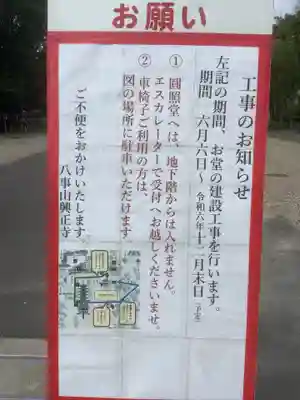 お願い
工事のお知らせ
左記の期間、お堂の建設工事を行います。
期間　六月六日～令和六年十二月末日（予定）
①　圓照堂へは、地下階からは入れません。
エスカレーターで受付へお越しくださいませ。
②　車椅子ご利用の方は、
図の場所に駐車いただけます
ご不便をおかけいたします
八事山興正寺